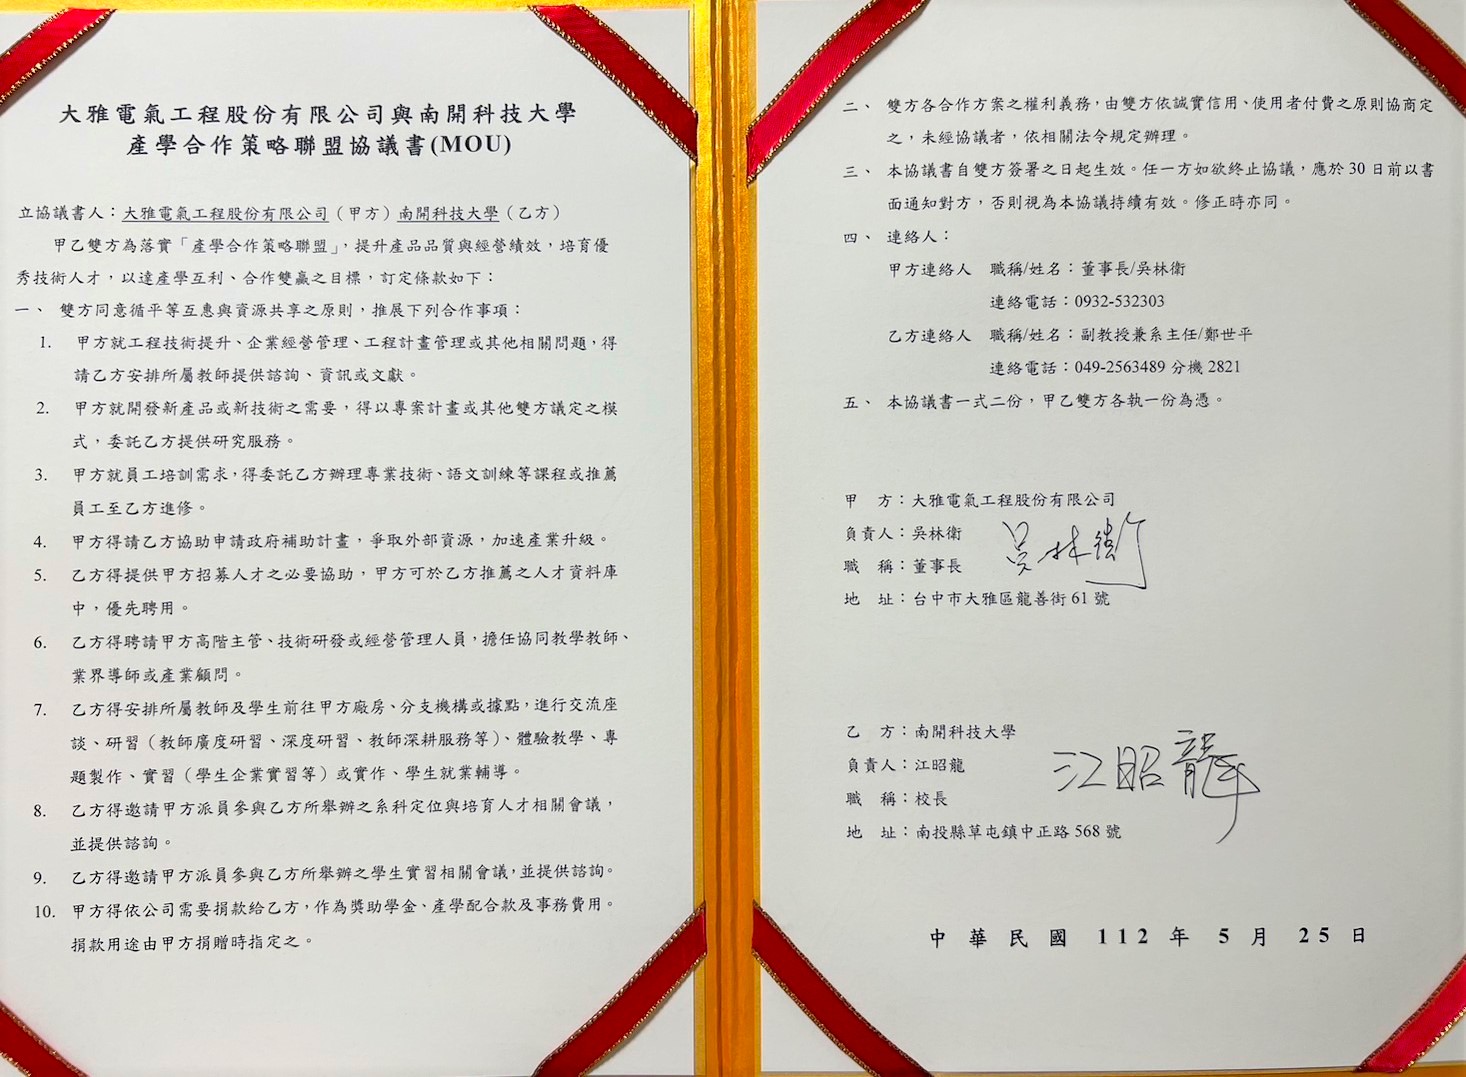 大雅電氣工程股份有限公司與南開科技大學
產學合作策略聯盟協議書(MOU)
立協議書人：大雅電氣工程股份有限公司（甲方）南開科技大學（乙方）
甲乙雙方為落實「產學合作策略聯盟」，提升產品品質與經營績效，培育優
秀技術人才，以達產學互利、合作雙贏之目標，訂定條款如下：
一、 雙方同意循平等互惠與資源共享之原則，推展下列合作事項：
1. 甲方就工程技術提升、企業經營管理、工程計畫管理或其他相關問題，得
請乙方安排所屬教師提供諮詢、資訊或文獻。
2. 甲方就開發新產品或新技術之需要，得以專案計畫或其他雙方議定之模
式，委託乙方提供研究服務。
3. 甲方就員工培訓需求，得委託乙方辦理專業技術、語文訓練等課程或推薦
員工至乙方進修。
4. 甲方得請乙方協助申請政府補助計畫，爭取外部資源，加速產業升級。
5. 乙方得提供甲方招募人才之必要協助，甲方可於乙方推薦之人才資料庫
中，優先聘用。
6. 乙方得聘請甲方高階主管、技術研發或經營管理人員，擔任協同教學教師、
業界導師或產業顧問。
7. 乙方得安排所屬教師及學生前往甲方廠房、分支機構或據點，進行交流座
談、研習（教師廣度研習、深度研習、教師深耕服務等）、體驗教學、專
題製作、實習（學生企業實習等）或實作、學生就業輔導。
8. 乙方得邀請甲方派員參與乙方所舉辦之系科定位與培育人才相關會議，
並提供諮詢。
9. 乙方得邀請甲方派員參與乙方所舉辦之學生實習相關會議，並提供諮詢。
10. 甲方得依公司需要捐款給乙方，作為獎助學金、產學配合款及事務費用。
捐款用途由甲方捐贈時指定之。
二、 雙方各合作方案之權利義務，由雙方依誠實信用、使用者付費之原則協商定
之，未經協議者，依相關法令規定辦理。
三、 本協議書自雙方簽署之日起生效。任一方如欲終止協議，應於 30 日前以書
面通知對方，否則視為本協議持續有效。修正時亦同。
四、 連絡人：
甲方連絡人 職稱/姓名：董事長/吳林衛
連絡電話：0932-532303
乙方連絡人 職稱/姓名：副教授兼系主任/鄭世平
連絡電話：049-2563489 分機 2821
五、 本協議書一式二份，甲乙雙方各執一份為憑。
甲 方：大雅電氣工程股份有限公司
負責人：吳林衛 吳林衛
職 稱：董事長
地 址：台中市大雅區龍善街 61 號
乙 方：南開科技大學
負責人：江昭龍 江昭龍
職 稱：校長
地 址：南投縣草屯鎮中正路 568 號
中 華 民 國 112 年 5 月 25 日